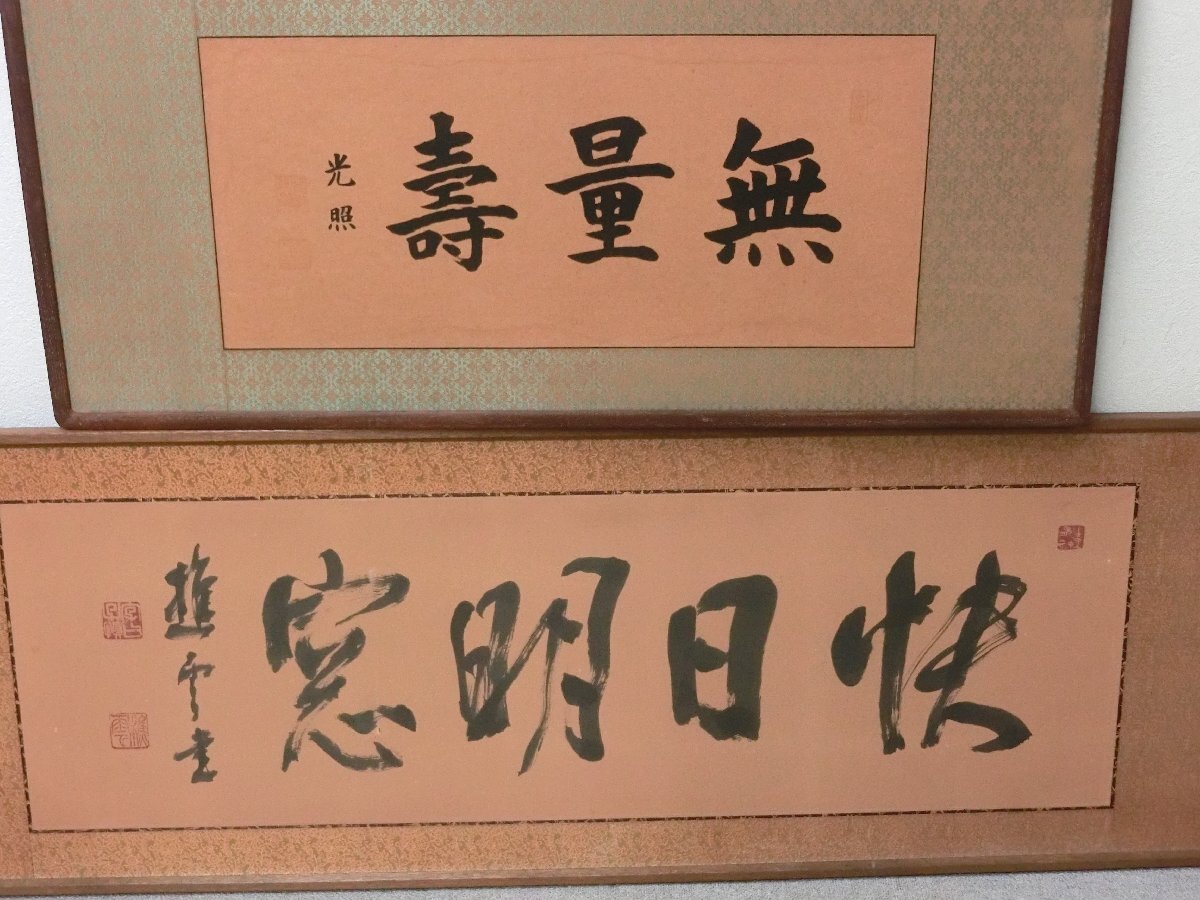 無量壽
光照
快日明窓
雲書